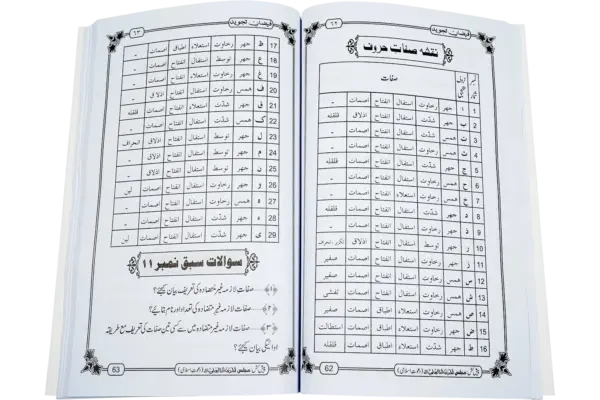 فیضانِ تجوید ٦٢
نقشہ صفاتِ حروف
نمبر شمار حروفِ تہجی صفات
1 ا جہر رخاوت استفال انفتاح اصمات -
2 ب جہر شدّت استفال انفتاح اذلاق قلقلہ
3 ت ہمس شدّت استفال انفتاح اصمات -
4 ث ہمس رخاوت استفال انفتاح اصمات -
5 ج جہر شدّت استفال انفتاح اصمات قلقلہ
6 ح ہمس رخاوت استفال انفتاح اصمات -
7 خ ہمس رخاوت استعلاء انفتاح اصمات -
8 د جہر شدّت استفال انفتاح اصمات قلقلہ
9 ذ جہر رخاوت استفال انفتاح اصمات -
10 ر جہر توسط استفال انفتاح اذلاق تکریر، انحراف
11 ز جہر رخاوت استفال انفتاح اصمات صفیر
12 س ہمس رخاوت استفال انفتاح اصمات صفیر
13 ش ہمس رخاوت استفال انفتاح اصمات تفشی
14 ص ہمس رخاوت استعلاء اطباق اصمات صفیر
15 ض جہر رخاوت استعلاء اطباق اصمات استطالت
16 ط جہر شدّت استعلاء اطباق اصمات قلقلہ
62 پیش کش: مجلس (دعوتِ اسلامی)
فیضانِ تجوید ٦٣
17 ظ جہر رخاوت استعلاء اطباق اصمات -
18 ع جہر توسط استفال انفتاح اصمات -
19 غ جہر رخاوت استعلاء انفتاح اصمات -
20 ف ہمس رخاوت استفال انفتاح اذلاق -
21 ق جہر شدّت استعلاء انفتاح اصمات قلقلہ
22 ک ہمس شدّت استفال انفتاح اصمات -
23 ل جہر توسط استفال انفتاح اذلاق انحراف
24 م جہر توسط استفال انفتاح اذلاق -
25 ن جہر توسط استفال انفتاح اذلاق -
26 و جہر رخاوت استفال انفتاح اصمات لین
27 ہ ہمس رخاوت استفال انفتاح اصمات -
28 ء جہر شدّت استفال انفتاح اصمات -
29 ی جہر رخاوت استفال انفتاح اصمات لین
سوالات سبق نمبر ١١
﴿١﴾ صفات لازمہ غیر متضادہ کی تعریف بیان کیجئے؟
﴿٢﴾ صفات لازمہ غیر متضادہ کی تعداد اور نام بتائیے؟
﴿٣﴾ صفات لازمہ غیر متضادہ میں سے کسی تین صفات کی تعریف مع طریقہ
ادائیگی بیان کیجئے؟
63 پیش کش: مجلس (دعوتِ اسلامی)